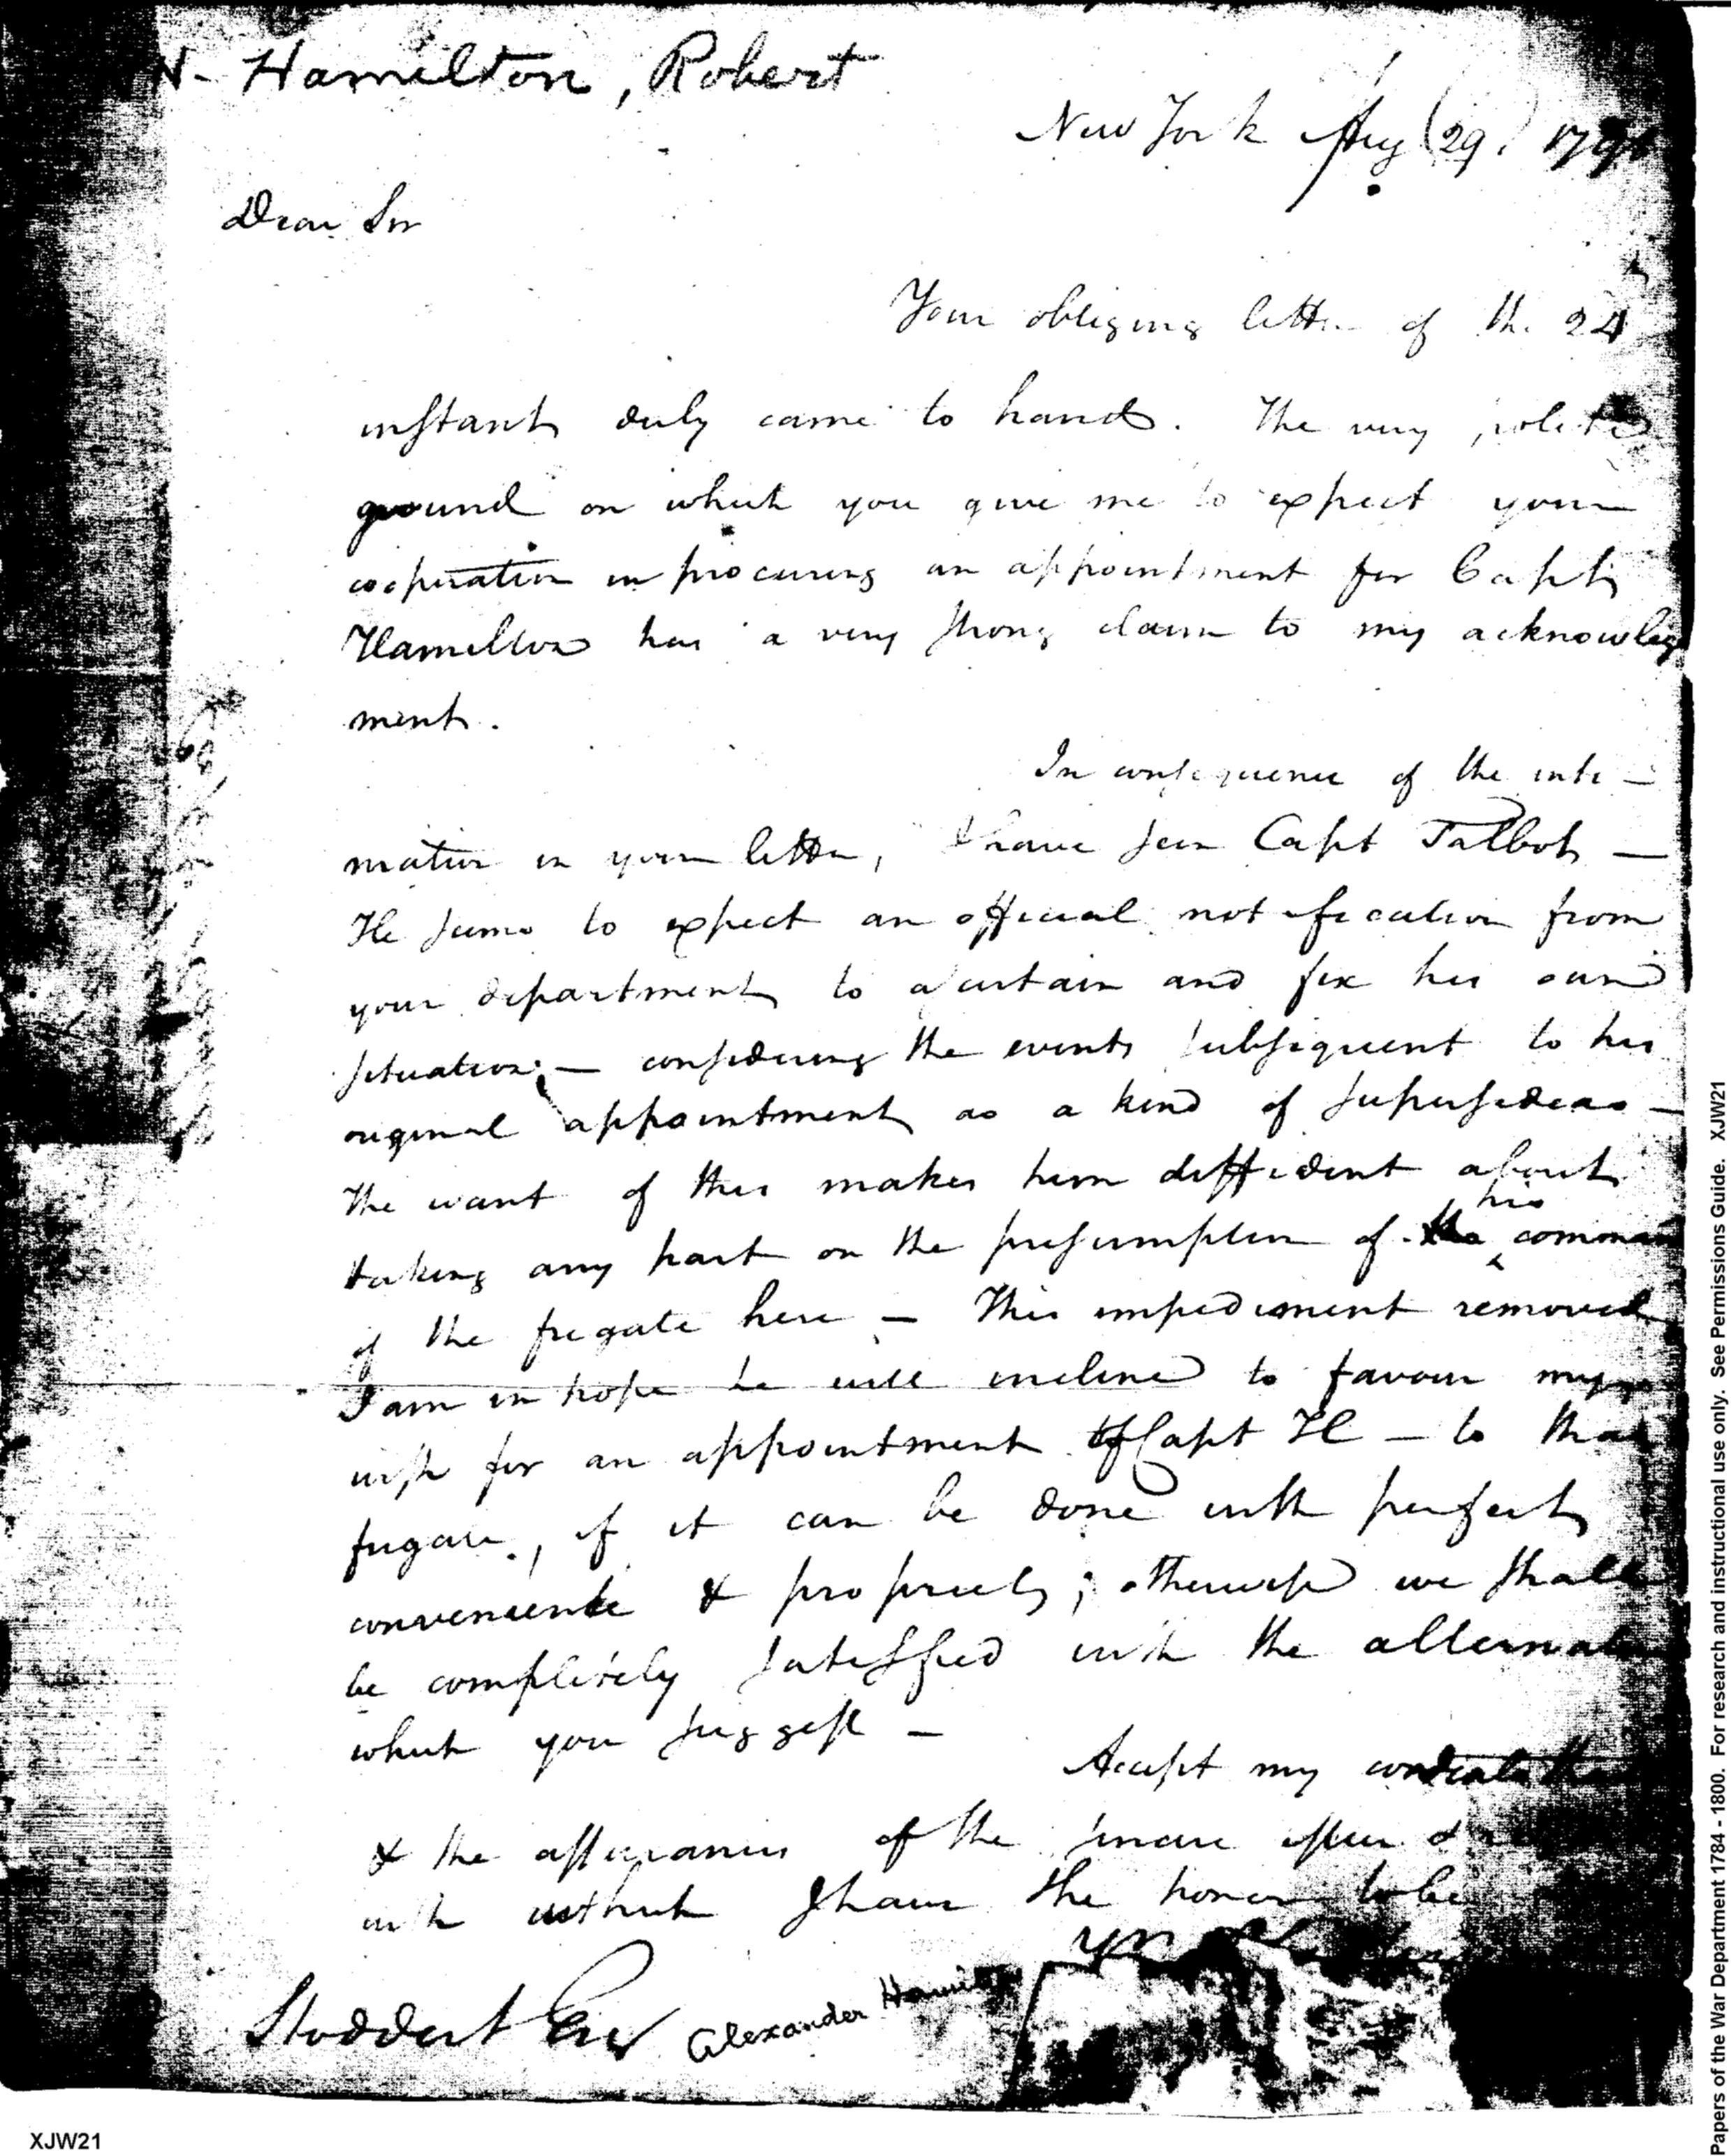 N- Hamilton, Robert
New York Aug (29. 1798
Dear Sir
Your obliging letter of the 24
instant duly came to hand. The very polite
ground on which you give me to expect your
cooperation in procuring an appointment for Capt
Hamilton has a very strong claim to my acknowleg
ment.
In consequence of the inti-
mation in your letter, I have seen Capt Talbot —
He seems to expect an official notification from
your department to ascertain and fix his own
situation; — considering the events subsequent to his
original appointment as a kind of supersedeas —
The want of this makes him diffident about
his
taking any part on the presumption of the command
of the frigate here — This impediment removed
I am in hope he will incline to favour my
wish for an appointment of Capt H — to that
frigate, if it can be done with perfect
convenience & propriety; otherwise we shall
be completely satisfied with the alternative
which you suggest —
Accept my cordial thanks
& the assurances of the sincere esteem &
with which I have the honor to be
Yr
Stoddert Esq Alexander Hamilton
XJW21
Papers of the War Department 1784 - 1800. For research and instructional use only. See Permissions Guide. XJW21